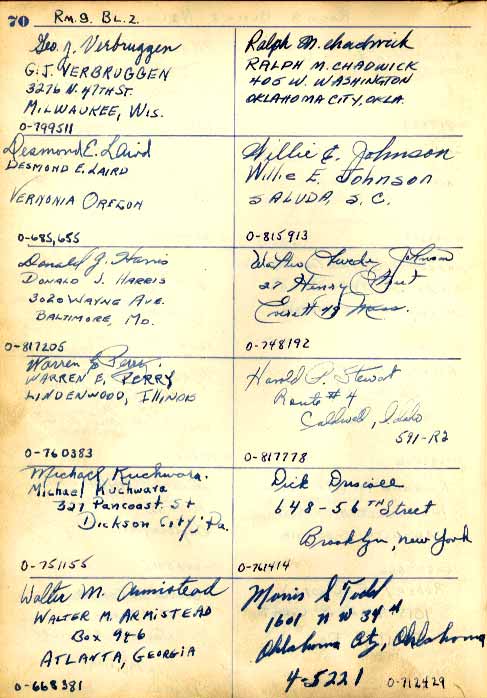 70 Rm. 9. BL. 2.
Geo. J. Verbruggen
G. J. VERBRUGGEN
3276 N. 47TH ST.
MILWAUKEE, WIS.
O-799511
Ralph M. Chadwick
RALPH M. CHADWICK
405 W. WASHINGTON
OKLAHOMA CITY, OKLA.
Desmond E. Laird
DESMOND E. LAIRD
VERNONIA OREGON
O-685,655
Willie E. Johnson
Willie E. Johnson
SALUDA, S. C.
O-815913
Donald J. Harris
DONALD J. HARRIS
3020 WAYNE AVE.
BALTIMORE, MD.
O-817205
Johnson
27 Henry Street
Everett 49 Mass.
O-748192
Warren E. Perry.
WARREN E. PERRY
LINDENWOOD, ILLINOIS
O-760383
Harold P. Stewart
Route #4
Caldwell, Idaho
591-R2
O-817778
Michael Kuchwara.
Michael Kuchwara
327 Pancoast St
Dickson City, Pa.
O-751155
Dick Driscoll
648-56TH Street
Brooklyn, New York
O-761414
Walter M. Armistead
WALTER M. ARMISTEAD
Box 946
ATLANTA, GEORGIA
O-668381
Morris S Todd
1601 N W 34th
Oklahoma City, Oklahoma
4-5221 O-712429